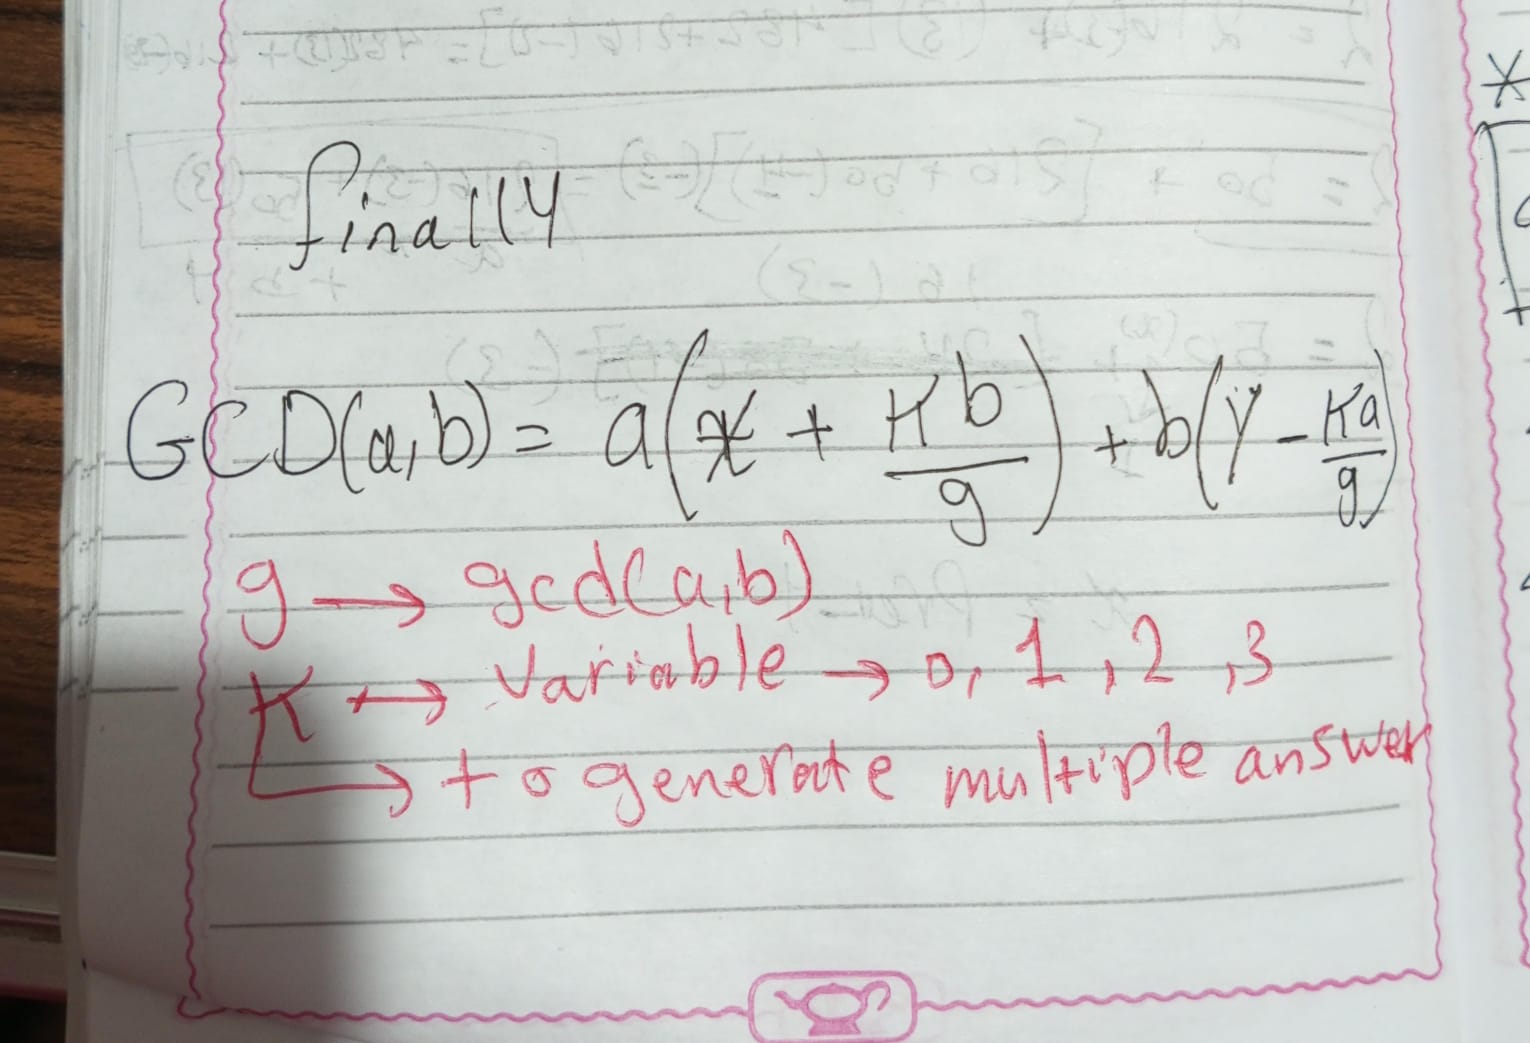 finally
GCD(a,b) = a(x + Kb/g) + b(y - Ka/g)
g → gcd(a,b)
K → Variable → 0, 1, 2, 3
→ to generate multiple answer